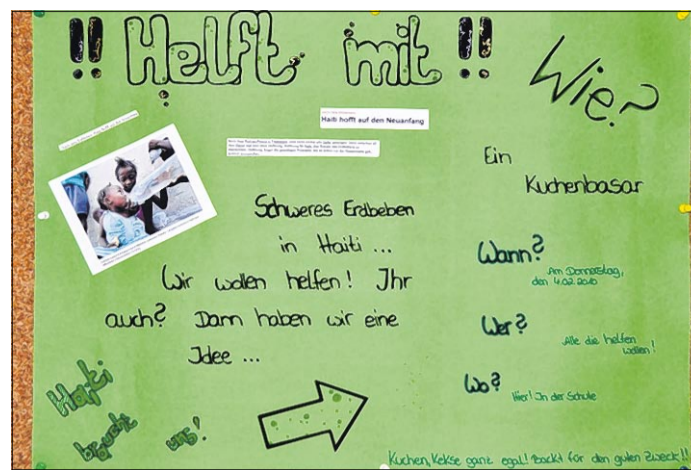 !! Helft mit !!
Wie?
Haiti hofft auf den Neuanfang
Ein
Kuchenbasar
Schweres Erdbeben
in Haiti ...
Wir wollen helfen! Ihr
auch? Dann haben wir eine
Idee ...
Wann?
Am Donnerstag,
den 4.02.2010
Wer?
Alle die helfen
wollen!
Wo?
Hier! In der Schule
Haiti
braucht
uns!
Kuchen, Kekse ganz egal! Backt für den guten Zweck!!